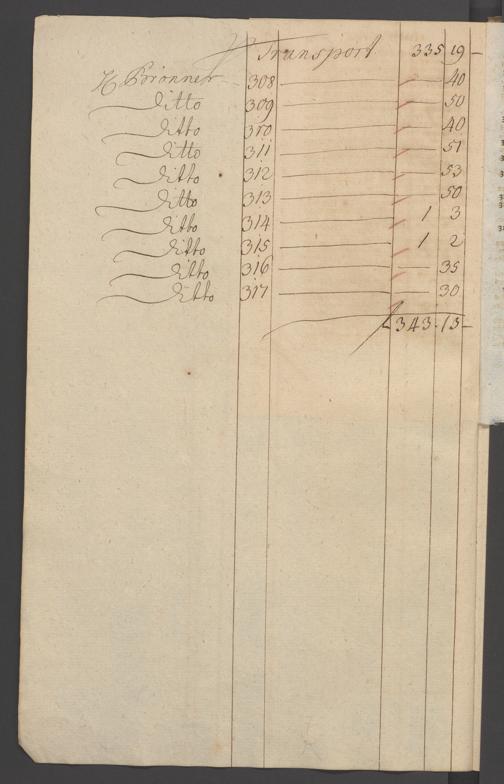 Transport 335 19
H Brönner 308 — 40
Ditto 309 — 50
Ditto 310 — 40
Ditto 311 — 51
Ditto 312 — 53
Ditto 313 — 50
Ditto 314 — 1 3
Ditto 315 — 1 2
Ditto 316 — 35
Ditto 317 — 30
343.13